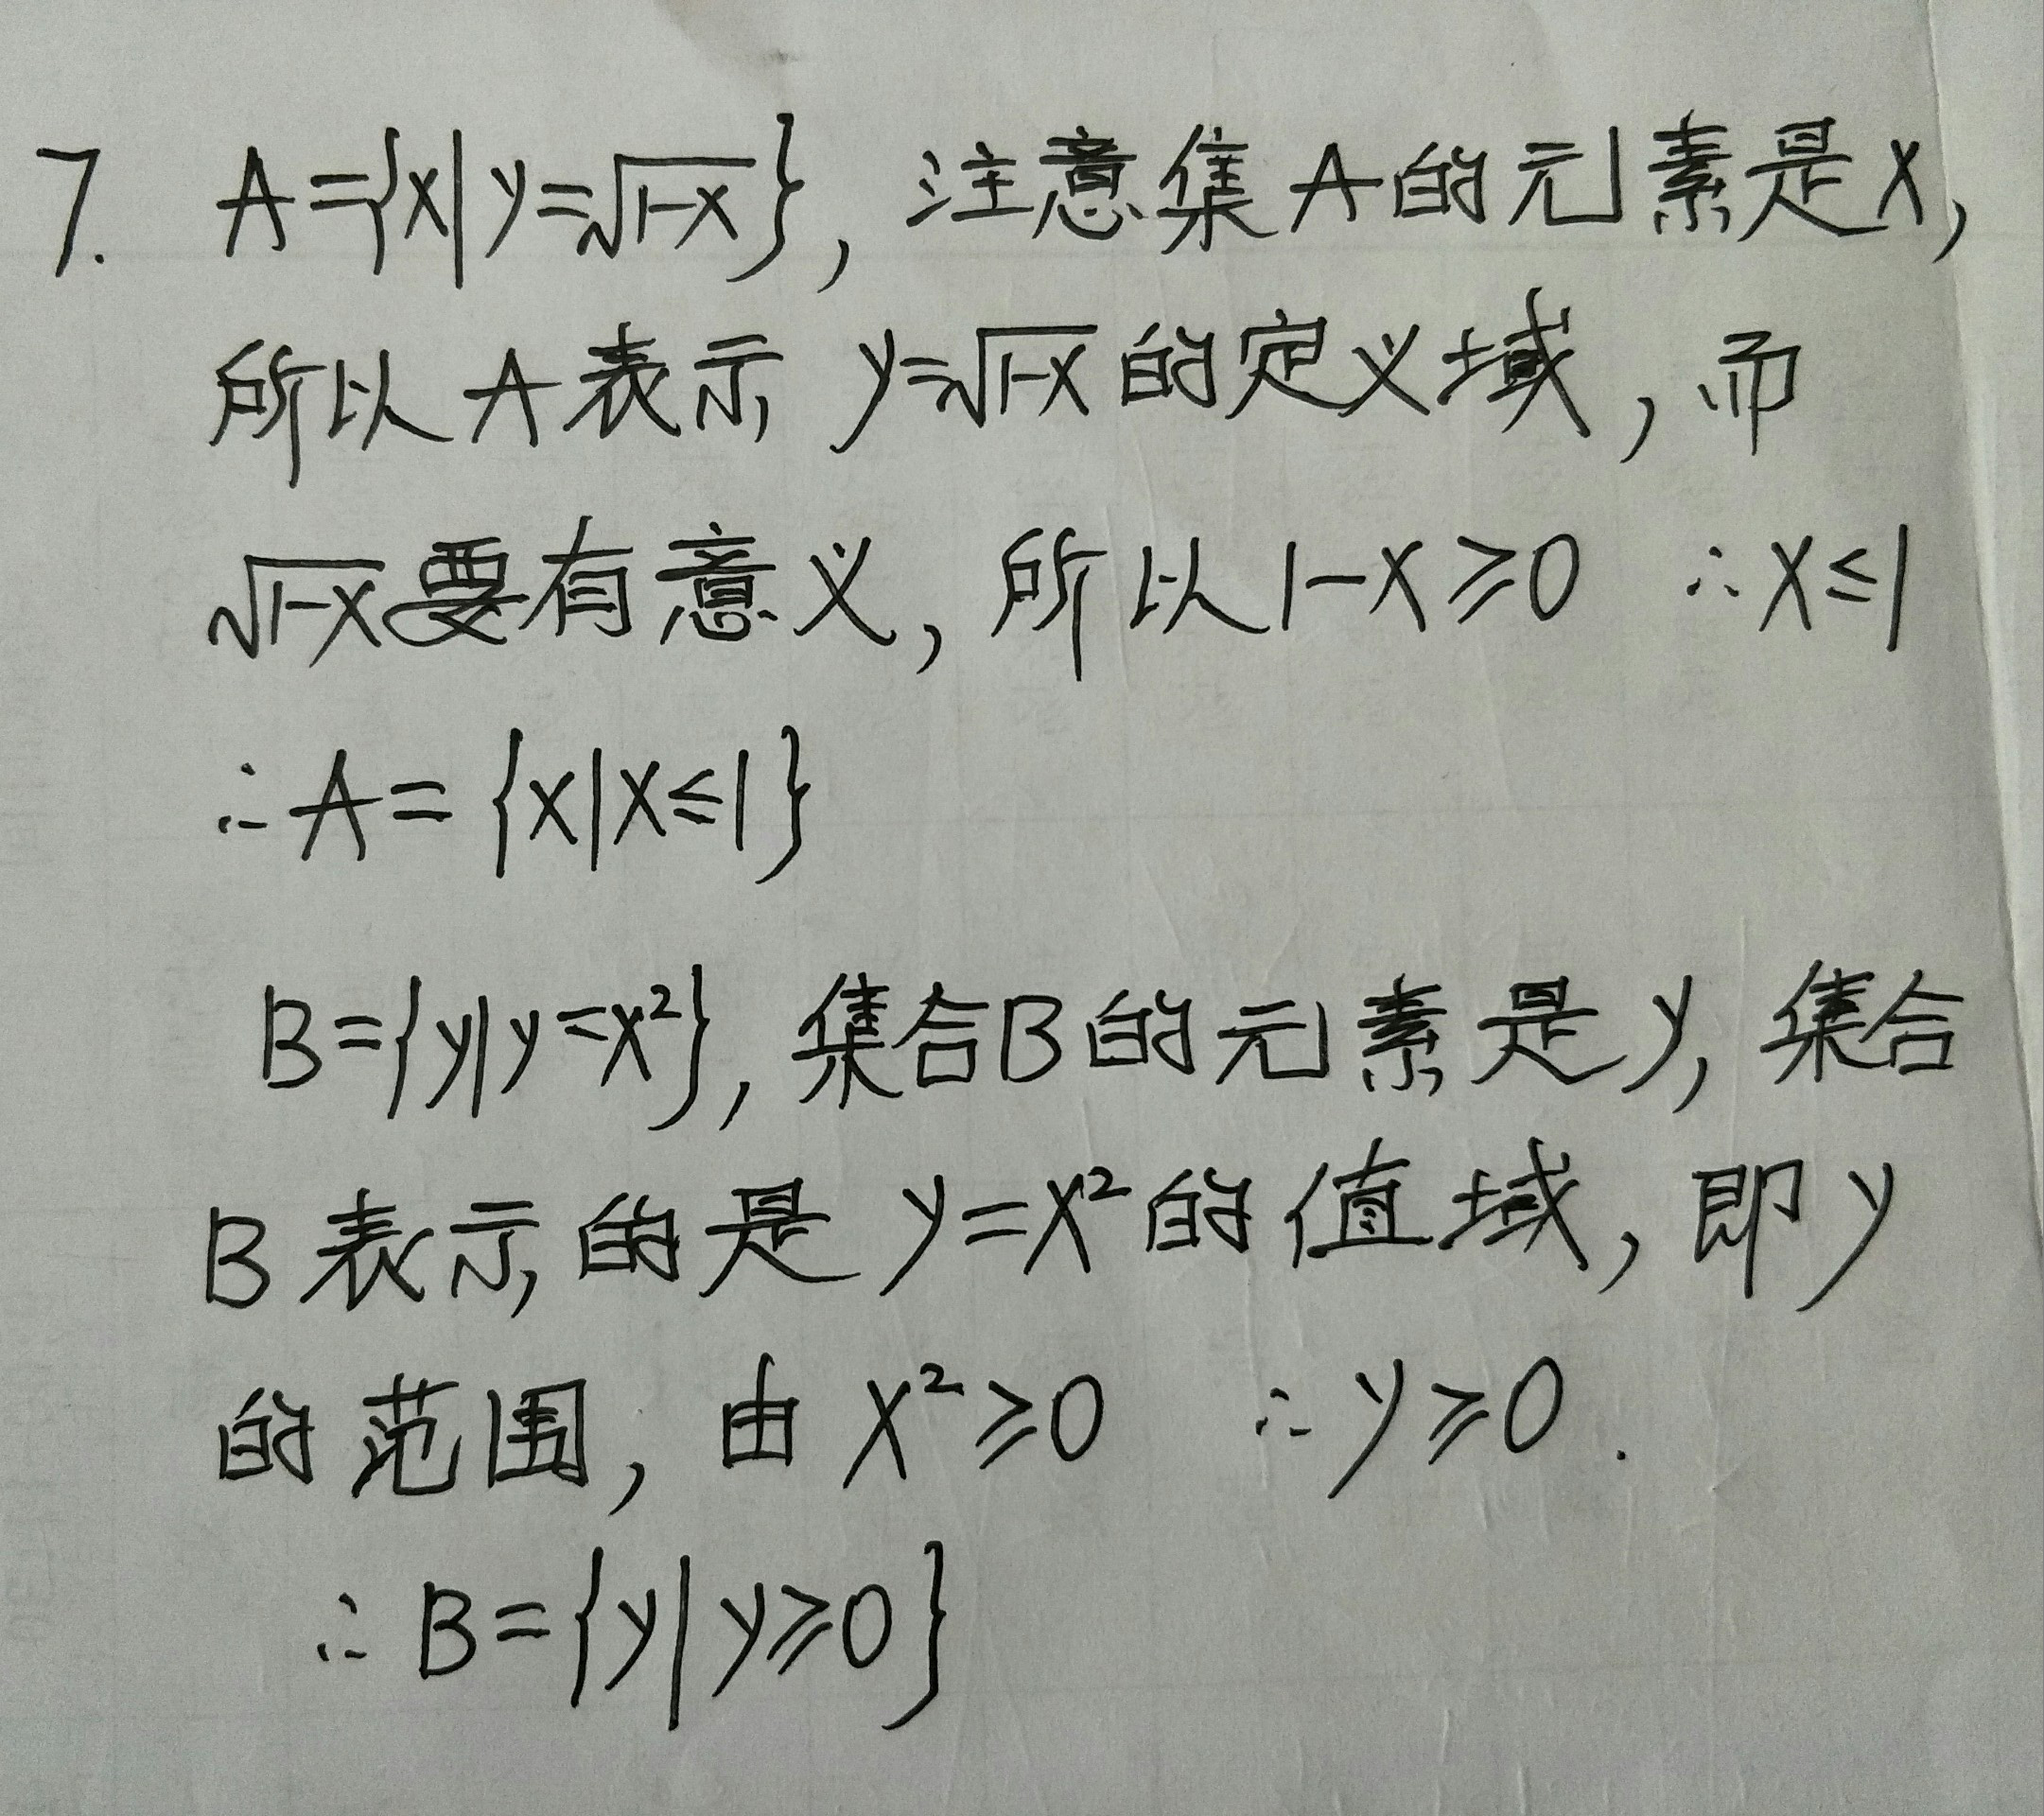 7. A={x|y=√1-x}, 注意集A的元素是x,
所以A表示 y=√1-x的定义域, 而
√1-x要有意义, 所以1-x≥0 ∴x≤1
∴A={x|x≤1}
B={y|y=x²}, 集合B的元素是y, 集合
B表示的是 y=x²的值域, 即y
的范围, 由 x²≥0 ∴y≥0.
∴B={y|y≥0}